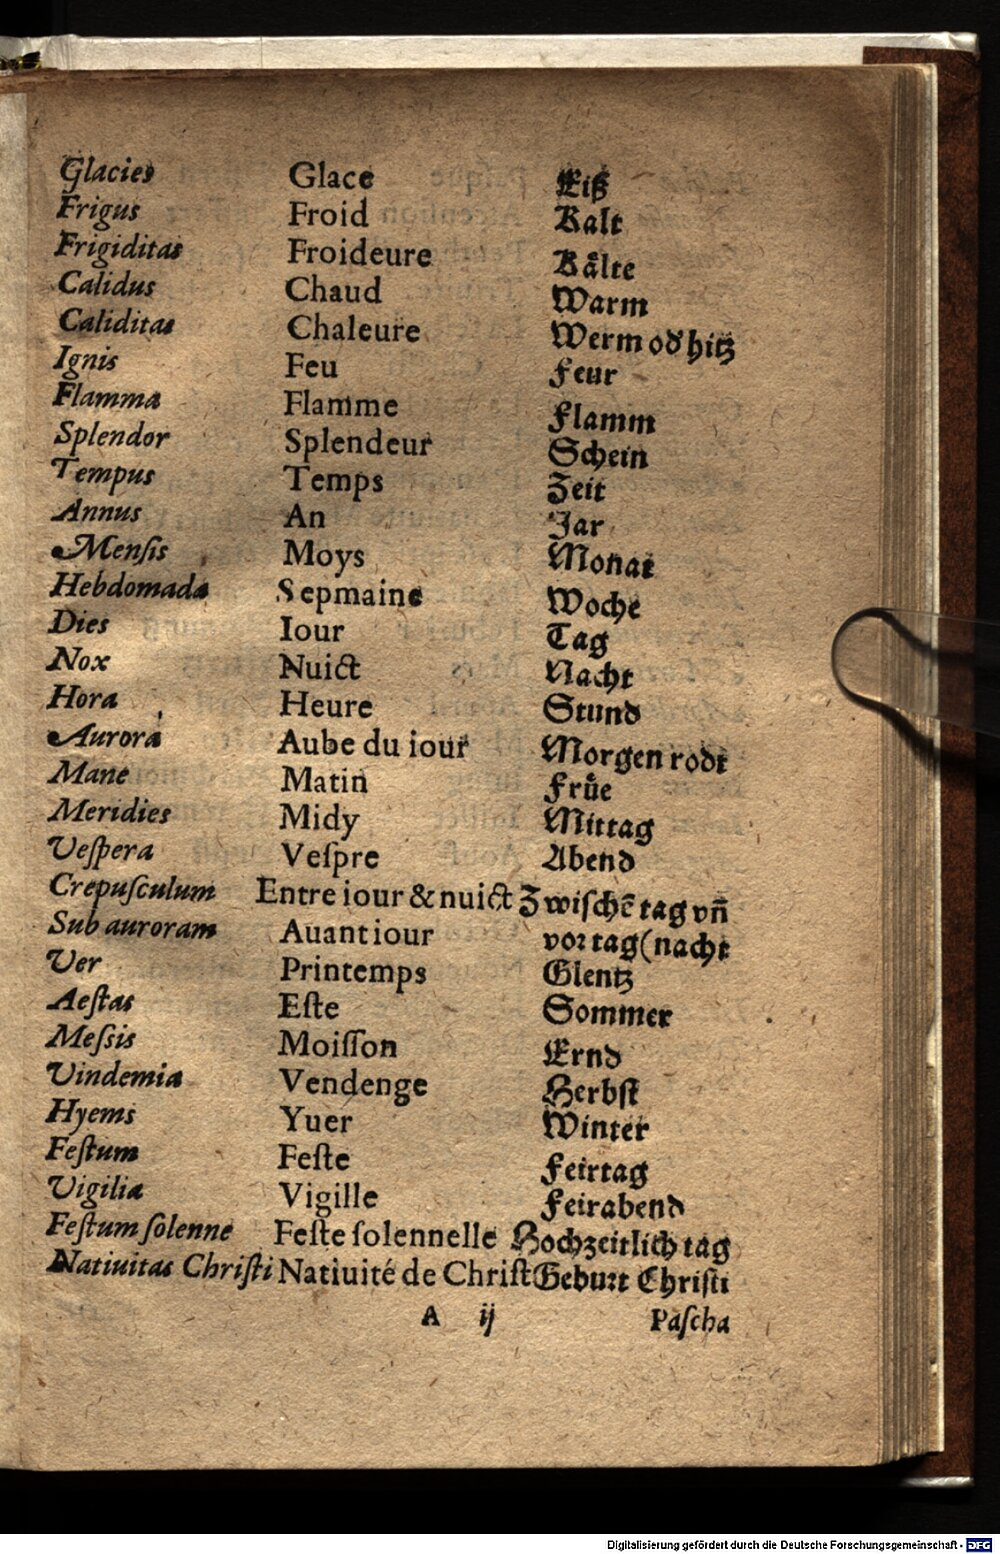 Glacies Glace Eiß
Frigus Froid Kalt
Frigiditas Froideure Kaͤlte
Calidus Chaud Warm
Caliditas Chaleure Werm od' hitz
Ignis Feu Feur
Flamma Flamme Flamm
Splendor Splendeur Schein
Tempus Temps Zeit
Annus An Jar
Mensis Moys Monat
Hebdomada Sepmaine Woche
Dies Iour Tag
Nox Nuict Nacht
Hora Heure Stund
Aurora Aube du iour Morgen rodt
Mane Matin Fruͤe
Meridies Midy Mittag
Veſpera Veſpre Abend
Crepuſculum Entre iour & nuict Zwiſchẽ tag vñ
Sub auroram Auant iour vor tag (nacht
Ver Printemps Glentz
Aeſtas Eſte Sommer
Meſsis Moiſſon Ernd
Vindemia Vendenge Herbſt
Hyems Yuer Winter
Feſtum Feſte Feirtag
Vigilia Vigille Feirabend
Feſtum ſolenne Feſte ſolennelle Hochzeitlich tag
Natiuitas Chriſti Natiuité de Chriſt Geburt Chriſti
A ij Paſcha
Digitalisierung gefördert durch die Deutsche Forschungsgemeinschaft - DFG